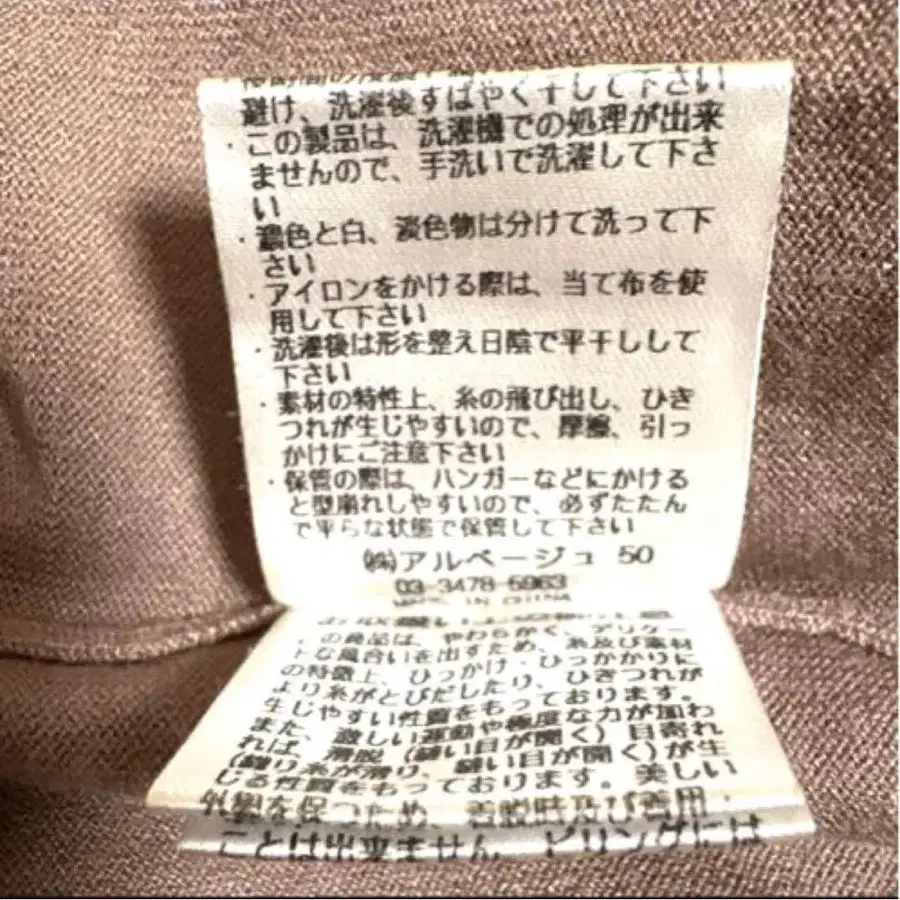 避け、洗濯後すばやく干して下さい
・この製品は、洗濯機での処理が出来
ませんので、手洗いで洗濯して下さ
い
・濃色と白、淡色物は分けて洗って下
さい
・アイロンをかける際は、当て布を使
用して下さい
・洗濯後は形を整え日陰で平干しして
下さい
・素材の特性上、糸の飛び出し、ひき
つれが生じやすいので、摩擦、引っ
かけにご注意下さい
・保管の際は、ハンガーなどにかける
と型崩れしやすいので、必ずたたん
で平らな状態で保管して下さい
㈱アルページュ 50
03-3478-5963
MADE IN CHINA
の商品は、やわらかく、デリケー
トな風合いを出すため、糸及び素材
の特徴上、ひっかけ・ひっかかりに
より糸がとびだしたり、ひきつれが
生じやすい性質をもっております。
また、激しい運動や極度な力が加わ
れば、滑脱(縫い目が開く)目寄れ
(織り糸が滑り、縫い目が開く)が生
じる性質をもっております。美しい
外観を保つため、着脱時及び着用・
ことは出来ません。ピリングには